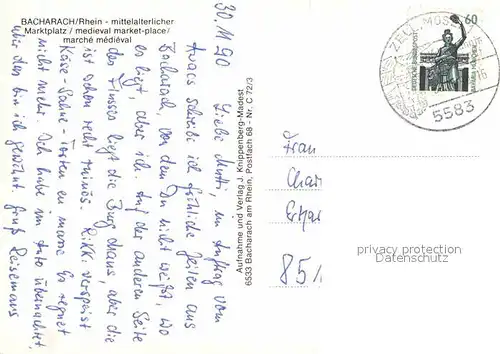 BACHARACH/Rhein - mittelalterlicher
Marktplatz / medieval market-place/
marché médiéval
30.11.90
Liebe Mutti, im Auftrag vom
schreibe ich fröhliche Zeilen aus
Bacharach, von dem Du nicht weißt, wo
es liegt, aber ich. Auf der anderen Seite
des Flusses liegt die Burg Maus, aber die
ist schon recht ruinös. Rikki verspeist
Käse-Sahne-Torten en masse. Es regnet
nicht mehr. Ich habe im Auto übernachtet,
aber das bin ich gewöhnt. Gruß Reisemaus
Aufnahme und Verlag J. Knippenberg-Madest
6533 Bacharach am Rhein, Postfach 68 - Nr. C 72/3
ZELL, MOSEL
5583
60
DEUTSCHE BUNDESPOST
Frau
85
privacy protection
Datenschutz